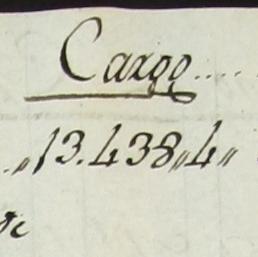 Cargo.....
..„13.438„4„